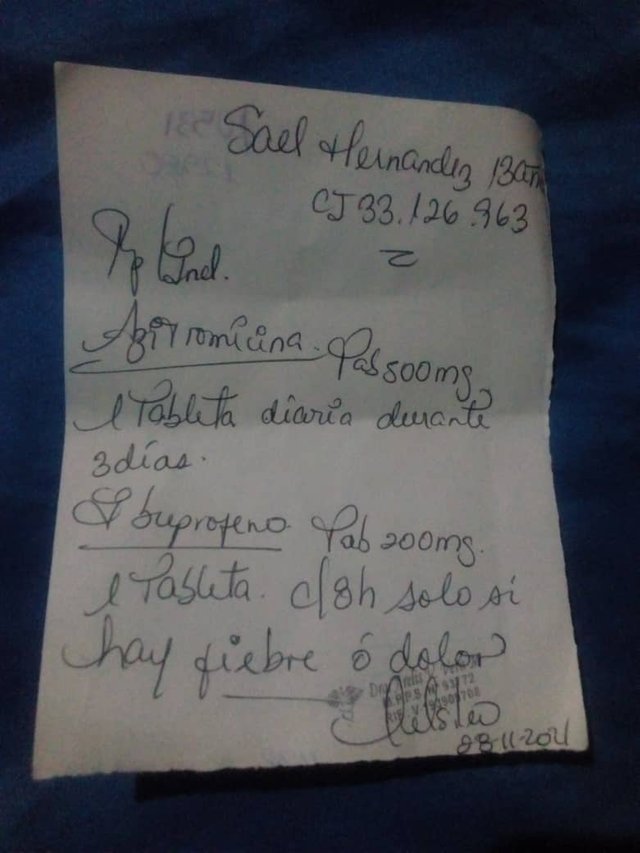 Sael Hernandez 13año
CI 33.126.963
Rp/Ind.
Azitromicina. Tab 500mg
1 Tableta diaria durante
3 días.
Ibuprofeno. Tab 200mg.
1 Tableta. c/8h solo si
hay fiebre ó dolor
M.P.P.S
28-11-2021